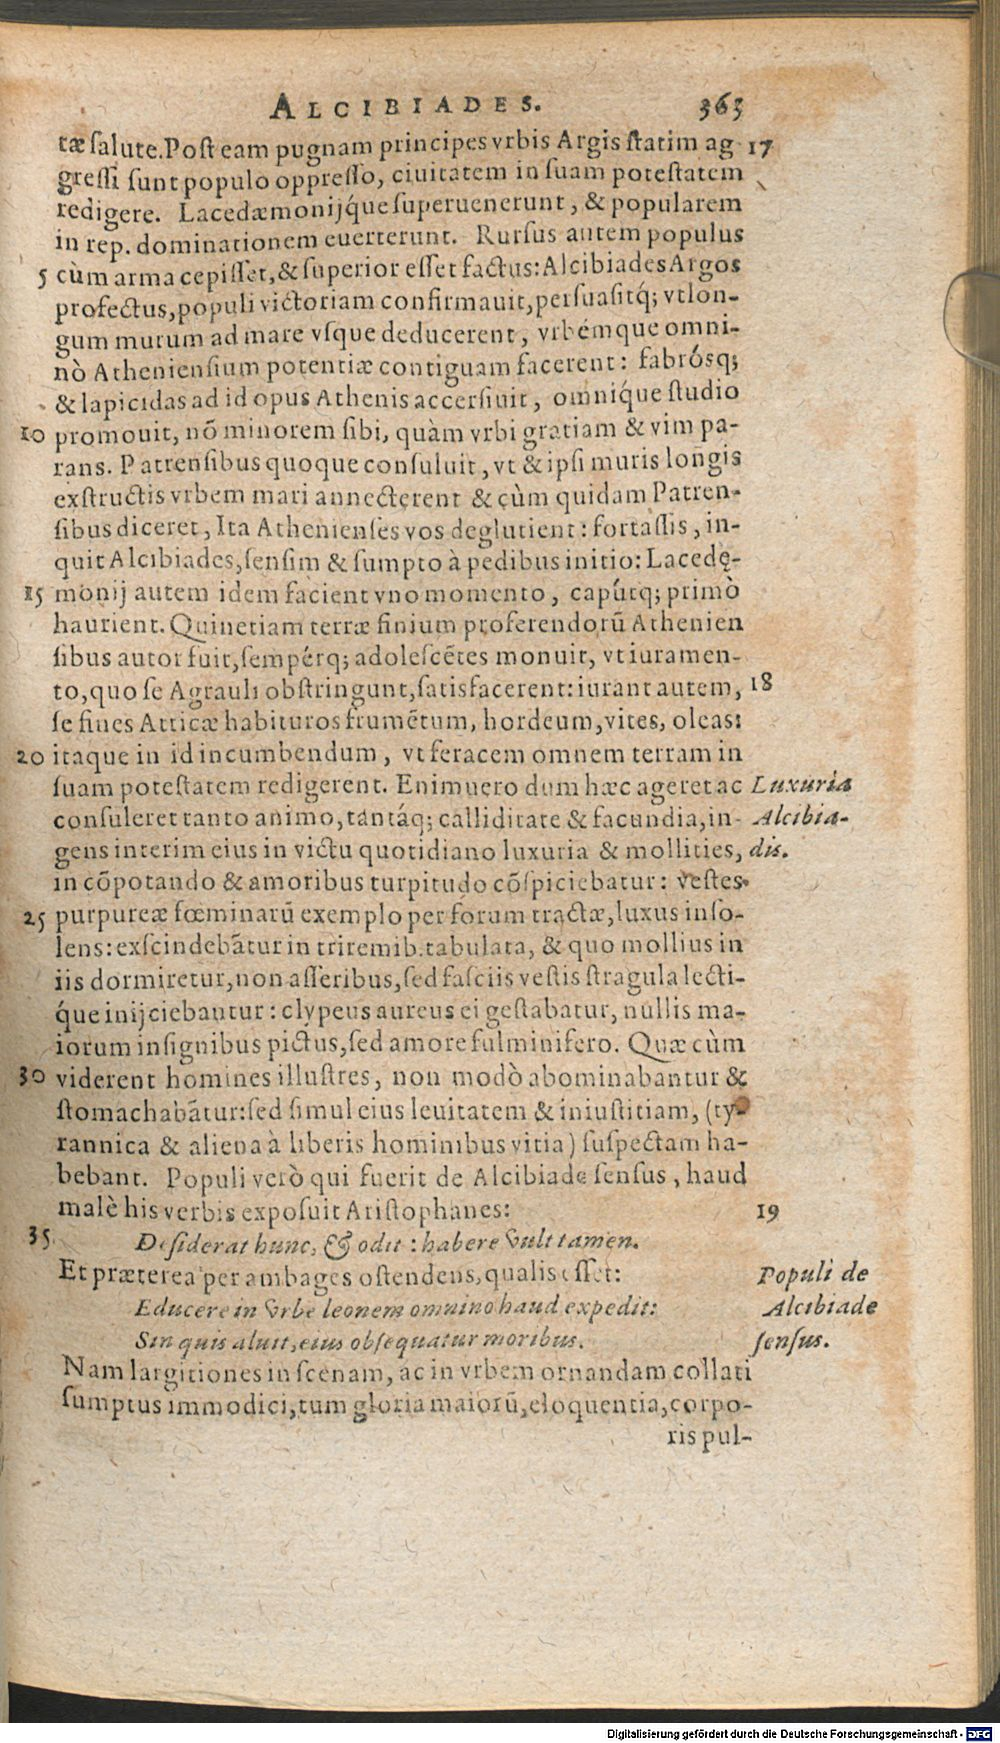 ALCIBIADES. 363
tæ ſalute. Poſt eam pugnam principes vrbis Argis ſtatim ag 17
greſſi ſunt populo oppreſſo, ciuitatem in ſuam poteſtatem
redigere. Lacedæmonijq́ue ſuperuenerunt, & popularem
in rep. dominationem euerterunt. Rurſus autem populus
5 cùm arma cepiſſet, & ſuperior eſſet factus: Alcibiades Argos
profectus, populi victoriam confirmauit, perſuaſitq́; vt lon-
gum murum ad mare vſque deducerent, vrbémque omni-
nò Athenienſium potentiæ contiguam facerent: fabróſq;
& lapicidas ad id opus Athenis accerſiuit, omniq́ue ſtudio
10 promouit, nõ minorem ſibi, quàm vrbi gratiam & vim pa-
rans. Patrenſibus quoque conſuluit, vt & ipſi muris longis
exſtructis vrbem mari annecterent & cùm quidam Patren-
ſibus diceret, Ita Athenienſes vos deglutient: fortaſſis, in-
quit Alcibiades, ſenſim & ſumpto à pedibus initio: Lacedę-
15 monij autem idem facient vno momento, capútq; primò
haurient. Quinetiam terræ finium proferendorũ Athenien
ſibus autor fuit, ſempérq; adoleſcẽtes monuit, vt iuramen-
to, quo ſe Agrauli obſtringunt, ſatisfacerent: iurant autem, 18
ſe fines Atticæ habituros frumẽtum, hordeum, vites, oleas:
20 itaque in id incumbendum, vt feracem omnem terram in
ſuam poteſtatem redigerent. Enimuero dum hæc ageret ac Luxuria
conſuleret tanto animo, tantáq; calliditate & facundia, in- Alcibia-
gens interim eius in victu quotidiano luxuria & mollities, dis.
in cõpotando & amoribus turpitudo cõſpiciebatur: veſtes
25 purpureæ fœminarũ exemplo per forum tractæ, luxus inſo-
lens: exſcindebãtur in triremib. tabulata, & quo mollius in
iis dormiretur, non aſſeribus, ſed faſciis veſtis ſtragula lecti-
q́ue inijciebantur: clypeus aureus ei geſtabatur, nullis ma-
iorum inſignibus pictus, ſed amore fulminifero. Quæ cùm
30 viderent homines illuſtres, non modò abominabantur &
ſtomachabãtur: ſed ſimul eius leuitatem & iniuſtitiam, (ty-
rannica & aliena à liberis hominibus vitia) ſuſpectam ha-
bebant. Populi verò qui fuerit de Alcibiade ſenſus, haud
malè his verbis expoſuit Ariſtophanes: 19
35 Deſiderat hunc, & odit: habere vult tamen.
Et præterea per ambages oſtendens, qualis eſſet: Populi de
Educere in vrbe leonem omnino haud expedit: Alcibiade
Sin quis aluit, eius obſequatur moribus. ſenſus.
Nam largitiones in ſcenam, ac in vrbem ornandam collati
ſumptus immodici, tum gloria maiorũ, eloquentia, corpo-
ris pul-
Digitalisierung gefördert durch die Deutsche Forschungsgemeinschaft - DFG